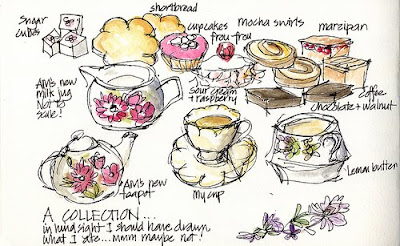 shortbread
Sugar
cubes
cupcakes
frou frou
mocha swirls
marzipan
AM's new
milk jug
Not to
scale!
Sour cream
+ raspberry
coffee
chocolate + walnut
AM's new
teapot
My cup
Lemon butter
A COLLECTION...
in hindsight I should have drawn
what I ate...mmm maybe not!